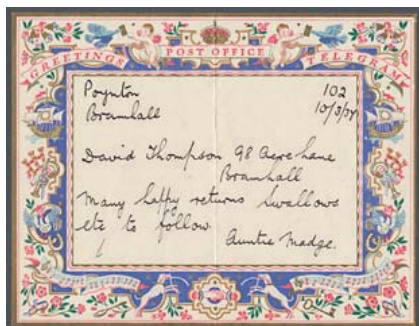 GREETINGS POST OFFICE TELEGRAM
Poynton 102
Bramhall 10/3/38
David Thompson 98 Acre Lane
Bramhall
Many happy returns Swallows
etc to follow
Auntie Madge.